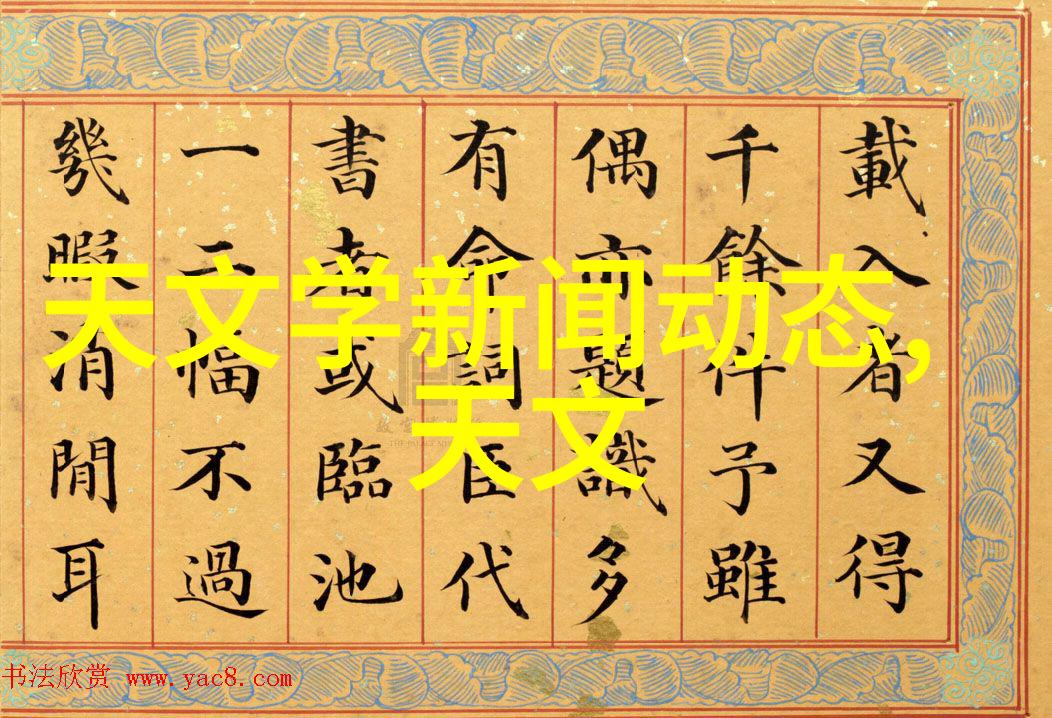 載入者又得
千餘件予雖
偶亦題識多
有命詞臣代
書者或臨池
一二幅不過
幾暇消閒耳
天文学新闻动态,
天文
书法欣赏 www.yac8.com